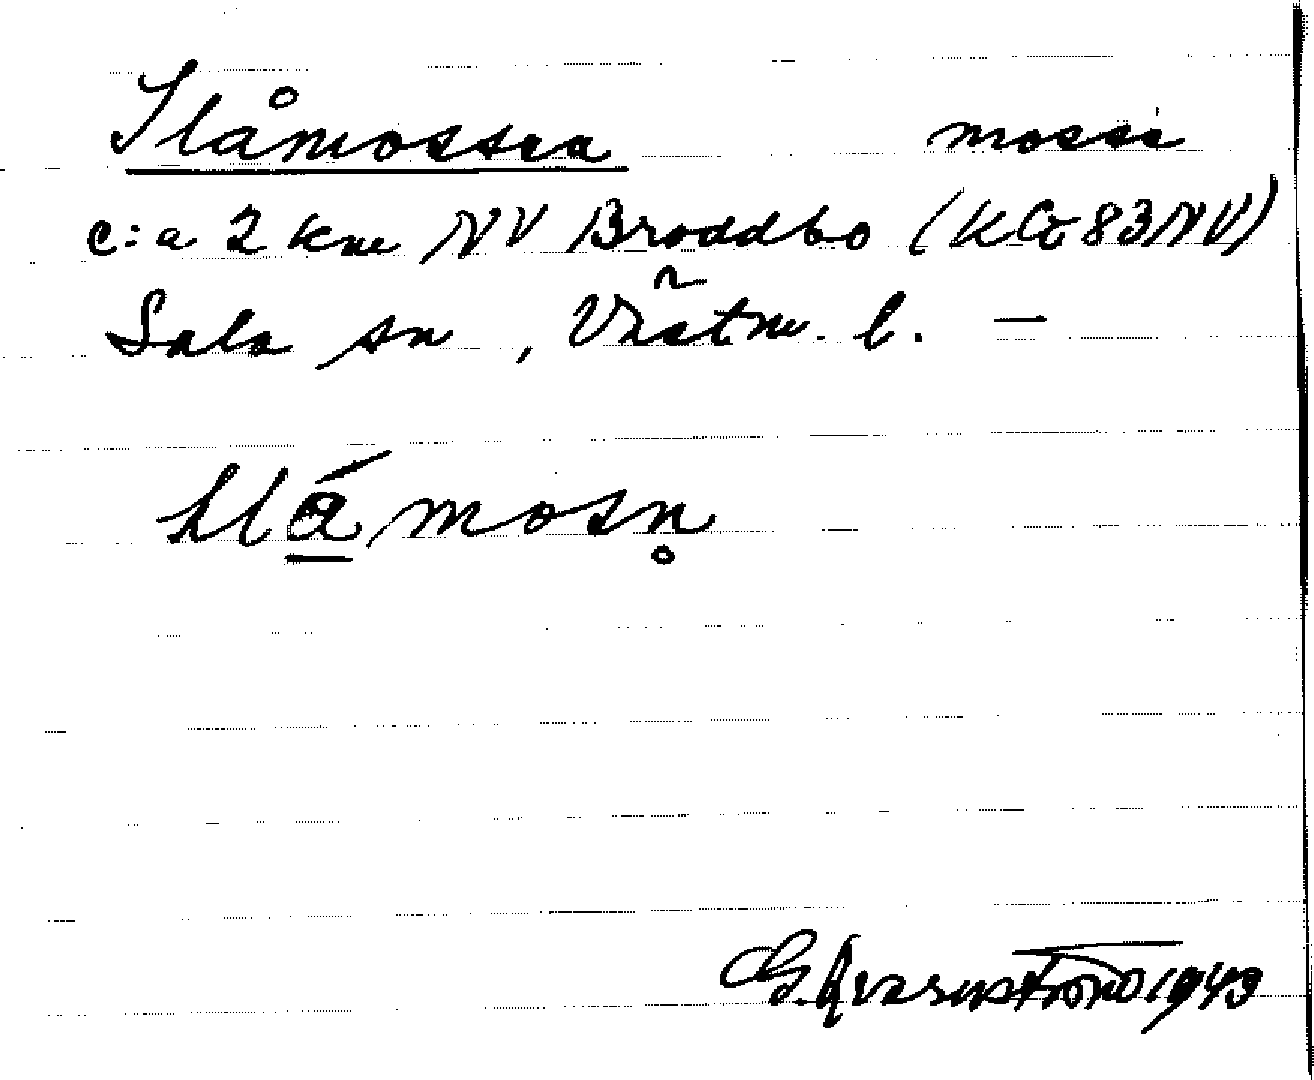 Slåmossen mosse
c:a 2 km NV Broddbo (KG 83NV)
Sala sn, Västm. l. —
slá̱mosn̥
G. Qvarnström 1943